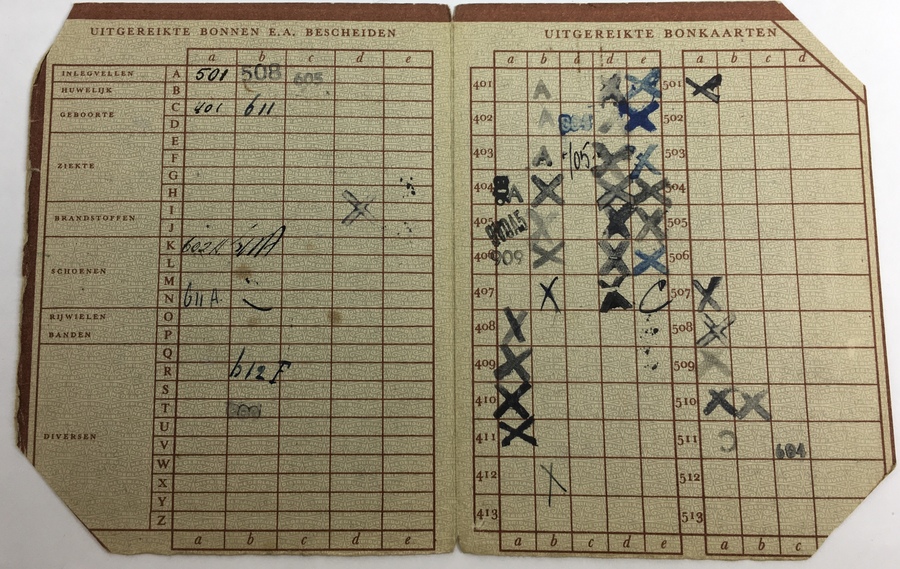 UITGEREIKTE BONNEN E.A. BESCHEIDEN
a b c d e
INLEGVELLEN A 501 508 605
HUWELIJK B
GEBOORTE C 401 611
D
E
ZIEKTE F
G
H
I X
BRANDSTOFFEN J
K 602A
L
SCHOENEN M
N 611 A.
RIJWIELEN O
BANDEN P
Q
R 612 F
S
T
U
DIVERSEN V
W
X
Y
Z
a b c d e
UITGEREIKTE BONKAARTEN
a b c d e a b c d e
401 A X X 501 X
402 A X 502
403 A X X 503
404 A X X X 504
405 X X X 505
406 909 X X X 506
407 X X C 507 X
408 X 508 X
409 X 509 X
410 X 510 X X
411 X 511 C 604
412 X 512
413 513
a b c d e a b c